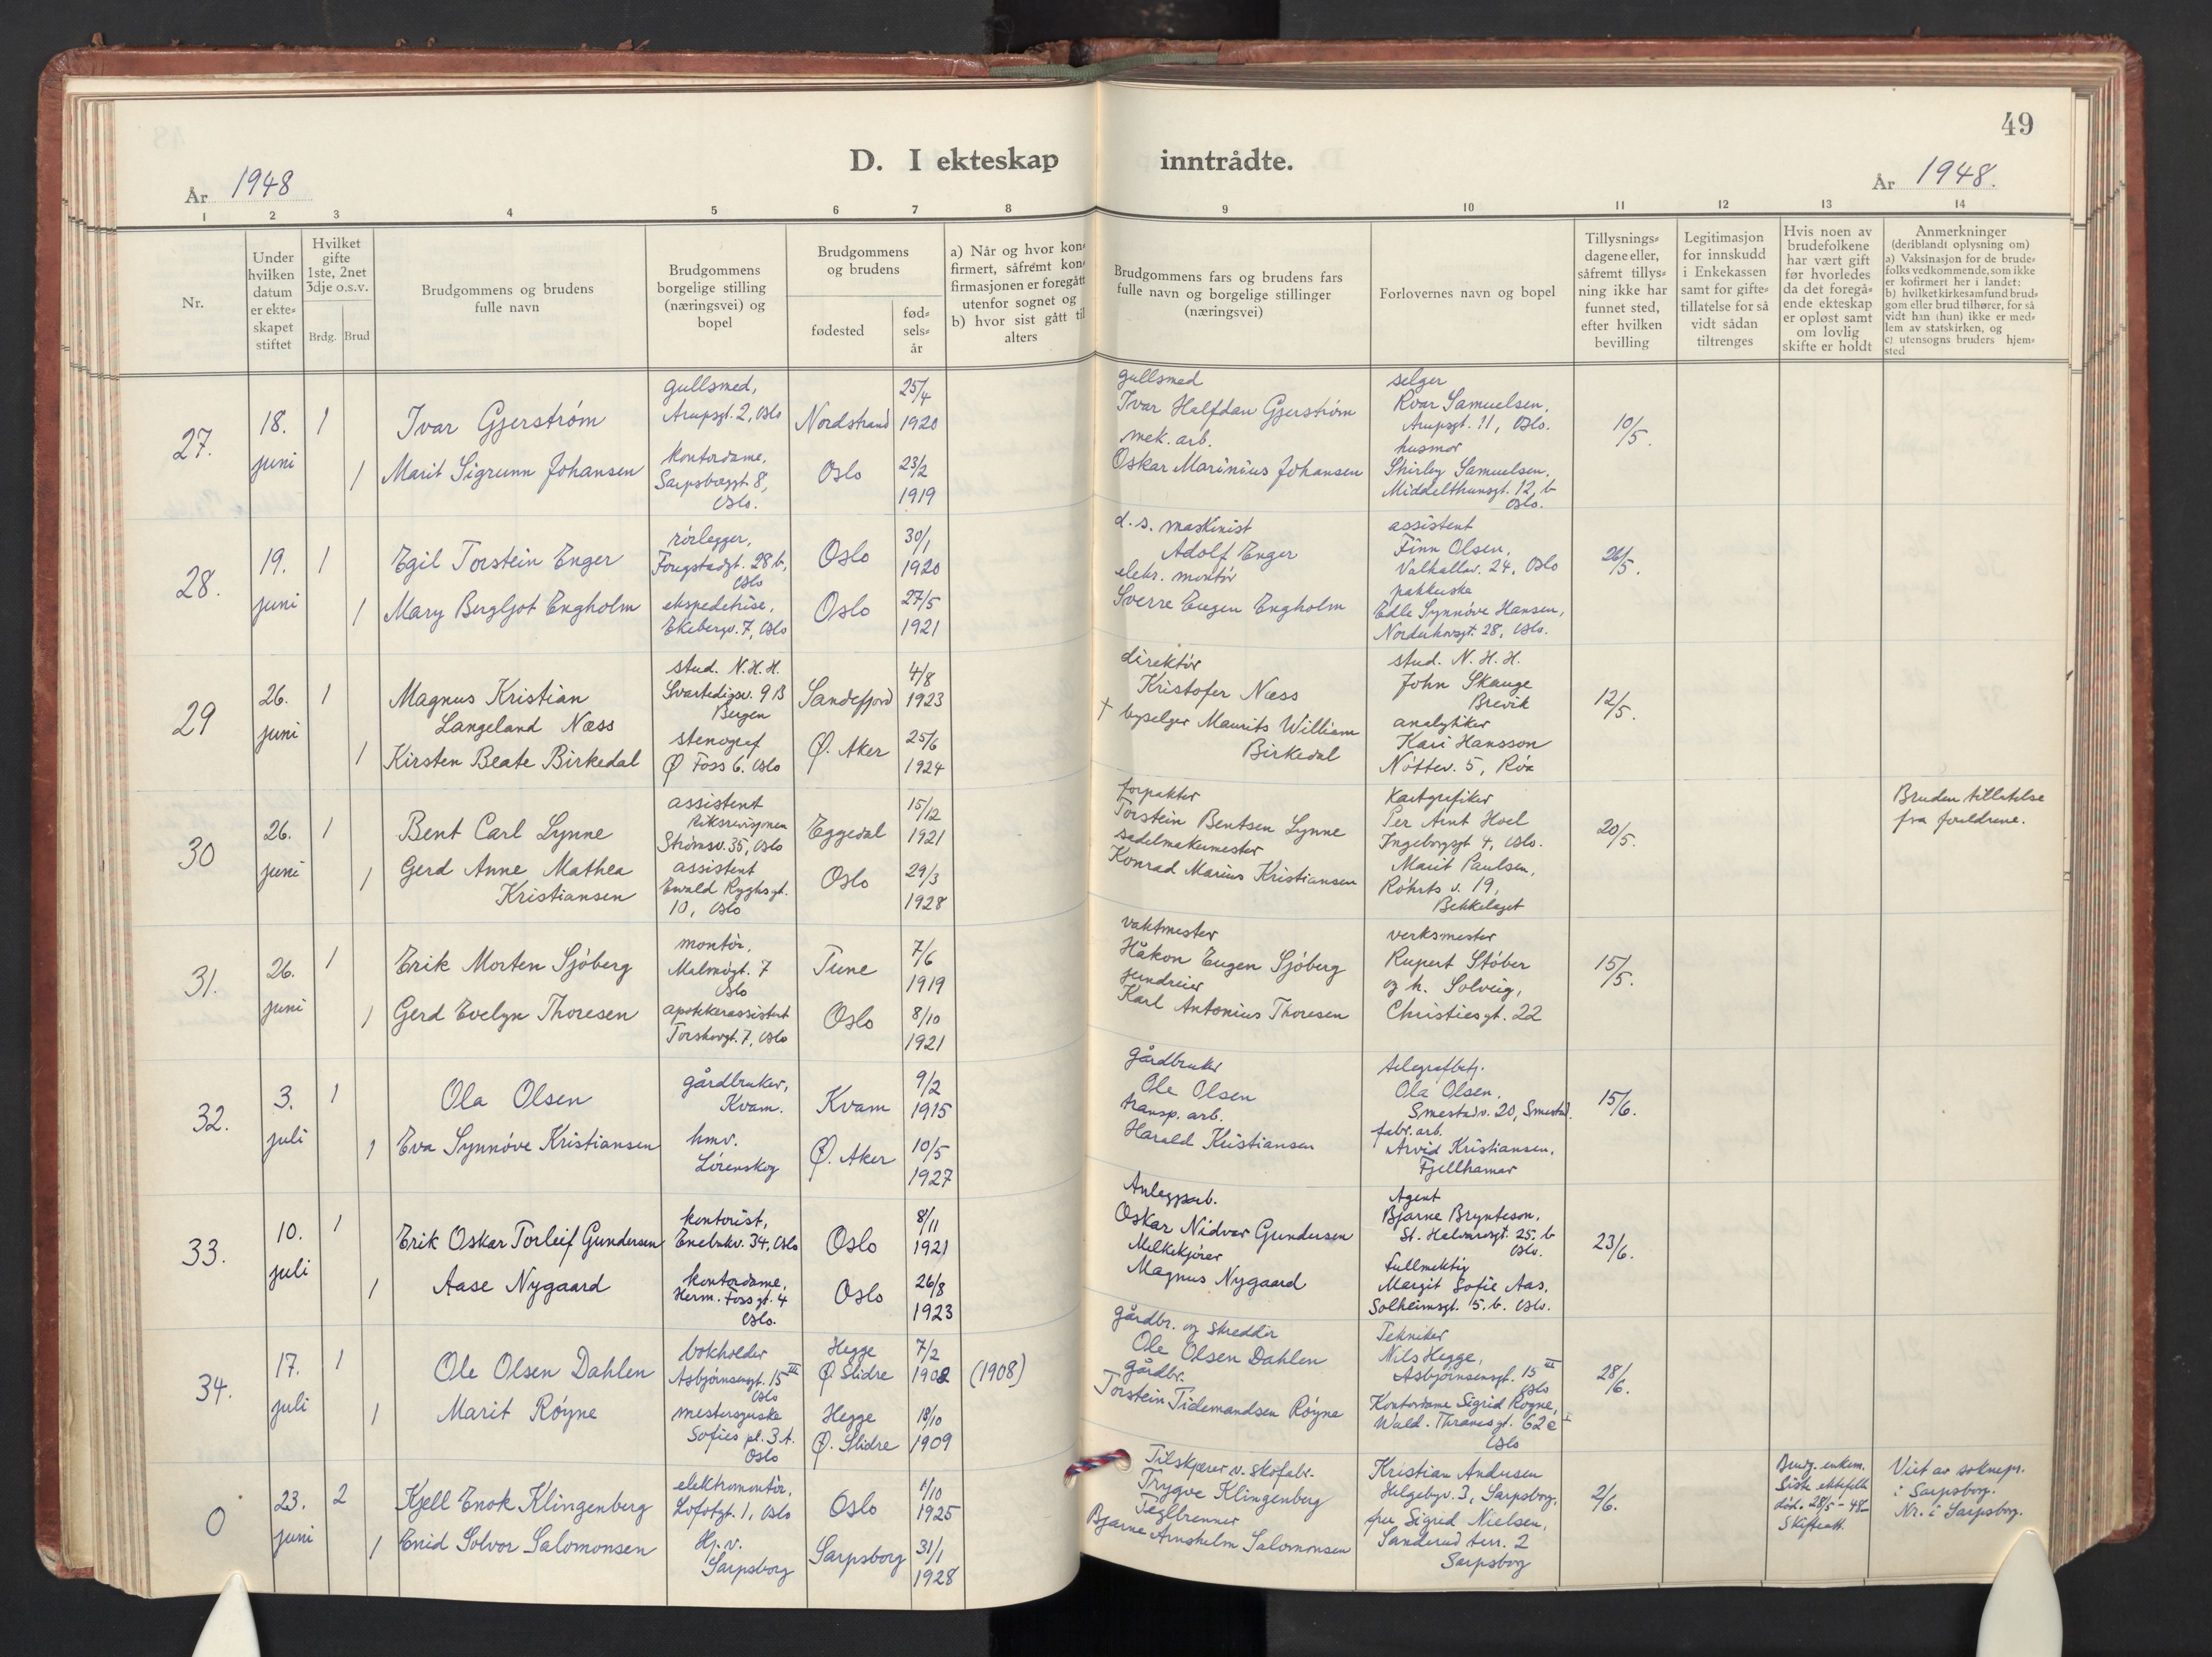 49
D. I ekteskap inntrådte.
År 1948
År 1948.
1 2 3 4 5 6 7 8 9 10 11 12 13 14
Nr.
Under
hvilken
datum
er ekte-
skapet
stiftet
Hvilket
gifte
1ste, 2net
3dje o.s.v.
Brdg. Brud
Brudgommens og brudens
fulle navn
Brudgommens
borgelige stilling
(næringsvei) og
bopel
Brudgommens
og brudens
fødested
fød-
sels-
år
a) Når og hvor kon-
firmert, såfremt kon-
firmasjonen er foregått
utenfor sognet og
b) hvor sist gått til
alters
Brudgommens fars og brudens fars
fulle navn og borgelige stillinger
(næringsvei)
Forlovernes navn og bopel
Tillysnings-
dagene eller,
såfremt tillys-
ning ikke har
funnet sted,
efter hvilken
bevilling
Legitimasjon
for innskudd
i Enkekassen
samt for gifte-
tillatelse for så
vidt sådan
tiltrenges
Hvis noen av
brudefolkene
har vært gift
før hvorledes
da det foregå-
ende ekteskap
er opløst samt
om lovlig
skifte er holdt
Anmerkninger
(deriblandt oplysning om)
a) Vaksinasjon for de brude-
folks vedkommende, som ikke
er kofirmert her i landet:
b) hvilket kirkesamfund brud-
gom eller brud tilhører, for så
vidt han (hun) ikke er med-
lem av statskirken, og
c) utensogns bruders hjem-
sted
27.
18.
juni
1
1
Ivar Gjerstrøm
Marit Sigrunn Johansen
gullsmed,
Arupsgt. 2, Oslo
kontordame,
Sarpsborggt 8,
Oslo.
Nordstrand
Oslo
25/4
1920
23/2
1919
gullsmed
Ivar Halfdan Gjerstrøm
mek. arb.
Oskar Marinius Johansen
selger
Roar Samuelsen,
Arupsgt. 11, Oslo.
husmor
Shirley Samuelsen,
Middelthunsgt. 12, b
Oslo.
10/5.
28.
19.
juni
1
1
Egil Torstein Enger
Mary Bergljot Engholm
rørlegger,
Fougstadgt. 28 b,
Oslo
ekspeditrise,
Ekebergv. 7, Oslo
Oslo
Oslo
30/1
1920
27/5
1921
d. s. maskinist
Adolf Enger
elekr. montør
Sverre Eugen Engholm
assistent
Finn Olsen,
Valhallav. 24, Oslo
pakkerske
Edle Synnöve Hansen,
Norderhovsgt. 28, Oslo.
26/5.
29
26.
juni
1
1
Magnus Kristian
Langeland Næss
Kirsten Beate Birkedal
stud. N. H. H.
Svartediksv. 9 B
Bergen
stenograf
Ø Foss 6. Oslo
Sandefjord
Ø. Aker
4/8
1923
25/6
1924
direktør
Kristofer Næss
† byselger Maurits William
Birkedal
stud. N. H. H.
John Skauge
Brevik
analytiker
Kari Hansson
Nøttev. 5, Røa
12/5.
30
26.
juni
1
1
Bent Carl Lynne
Gerd Anne Mathea
Kristiansen
assistent
Riksrevisjonen
Strømsv. 35, Oslo
assistent
Ewald Ryghsgt.
10, Oslo
Eggedal
Oslo
15/12
1921
29/3
1928
forpakter
Torstein Bentsen Lynne
sadelmakermester
Konrad Marius Kristiansen
Kartgrafiker
Per Arnt Hoel
Ingeborgsgt 4, Oslo.
Marit Paulsen,
Røhrts v. 19,
Bekkelaget
20/5.
Bruden tillatelse
fra foreldrene.
31.
26.
juni
1
1
Erik Morten Sjöberg
Gerd Evelyn Thoresen
montør,
Malmøgt. 7
Oslo
apotekerassistent
Torshovgt. 7, Oslo
Tune
Oslo
7/6
1919
8/10
1921
vaktmester
Håkon Eugen Sjöberg
jerndreier
Karl Antonius Thoresen
verksmester
Rupert Stöber
og h. Solveig,
Christiesgt. 22
15/5.
32.
3.
juli
1
1
Ola Olsen
Eva Synnöve Kristiansen
gårdbruker,
Kvam.
hmv.
Lørenskog
Kvam
Ø. Aker
9/2
1915
10/5
1927
gårdbruker
Ole Olsen
transp. arb.
Harald Kristiansen
telegrafbetj.
Ola Olsen,
Smestadv. 20, Smestad.
fabr. arb.
Arvid Kristiansen,
Fjellhamar
15/6.
33.
10.
juli
1
1
Erik Oskar Torleif Gundersen
Aase Nygaard
kontorist,
Enebakv. 34, Oslo
kontordame,
Herm. Foss gt. 4
Oslo.
Oslo
Oslo
8/11
1921
26/8
1923
Anleggsarb.
Oskar Nidvar Gundersen
Melkekjører
Magnus Nygaard
Agent
Bjarne Brynteson,
St. Halvardsgt. 25. b
Oslo.
fullmektig
Margit Sofie Aas,
Solheimsgt. 5. b. Oslo.
23/6.
34.
17.
juli
1
1
Ole Olsen Dahlen
Marit Røyne
bokholder
Asbjørnsensgt. 15 III
Oslo
mestersyerske
Sofies pl. 3 A.
Oslo
Hegge
Ø. Slidre
Hegge
Ø. Slidre
7/2
1908
(1908)
18/10
1909
gårdbr. og skredder
Ole Olsen Dahlen
gårdbr.
Torstein Tidemandsen Røyne
Tekniker
Nils Hegge,
Asbjørnsensgt. 15 III
Oslo
Kontordame Sigrid Røyne,
Wald. Thranesgt. 62 c I
Oslo
28/6.
0
23.
juni
2
1
Kjell Enok Klingenberg
Enid Solvor Salomonsen
elektromontør,
Lofotgt. 1, Oslo
Hj. v.
Sarpsborg
Oslo
Sarpsborg
1/10
1925
31/1
1928
Tilskjærer v. skofabr.
Trygve Klingenberg
Teglbrenner
Bjarne Arnshelm Salomonsen
Kristian Andersen
Helgebyv. 3, Sarpsborg,
fru Sigrid Nielsen,
Sanderud terr. 2
Sarpsborg
2/6.
Brudg. enkem.
Siste ektefelle
død. 28/5 - 48
Skifteatt.
Viet av soknepr.
i Sarpsborg.
Nr. i Sarpsborg.